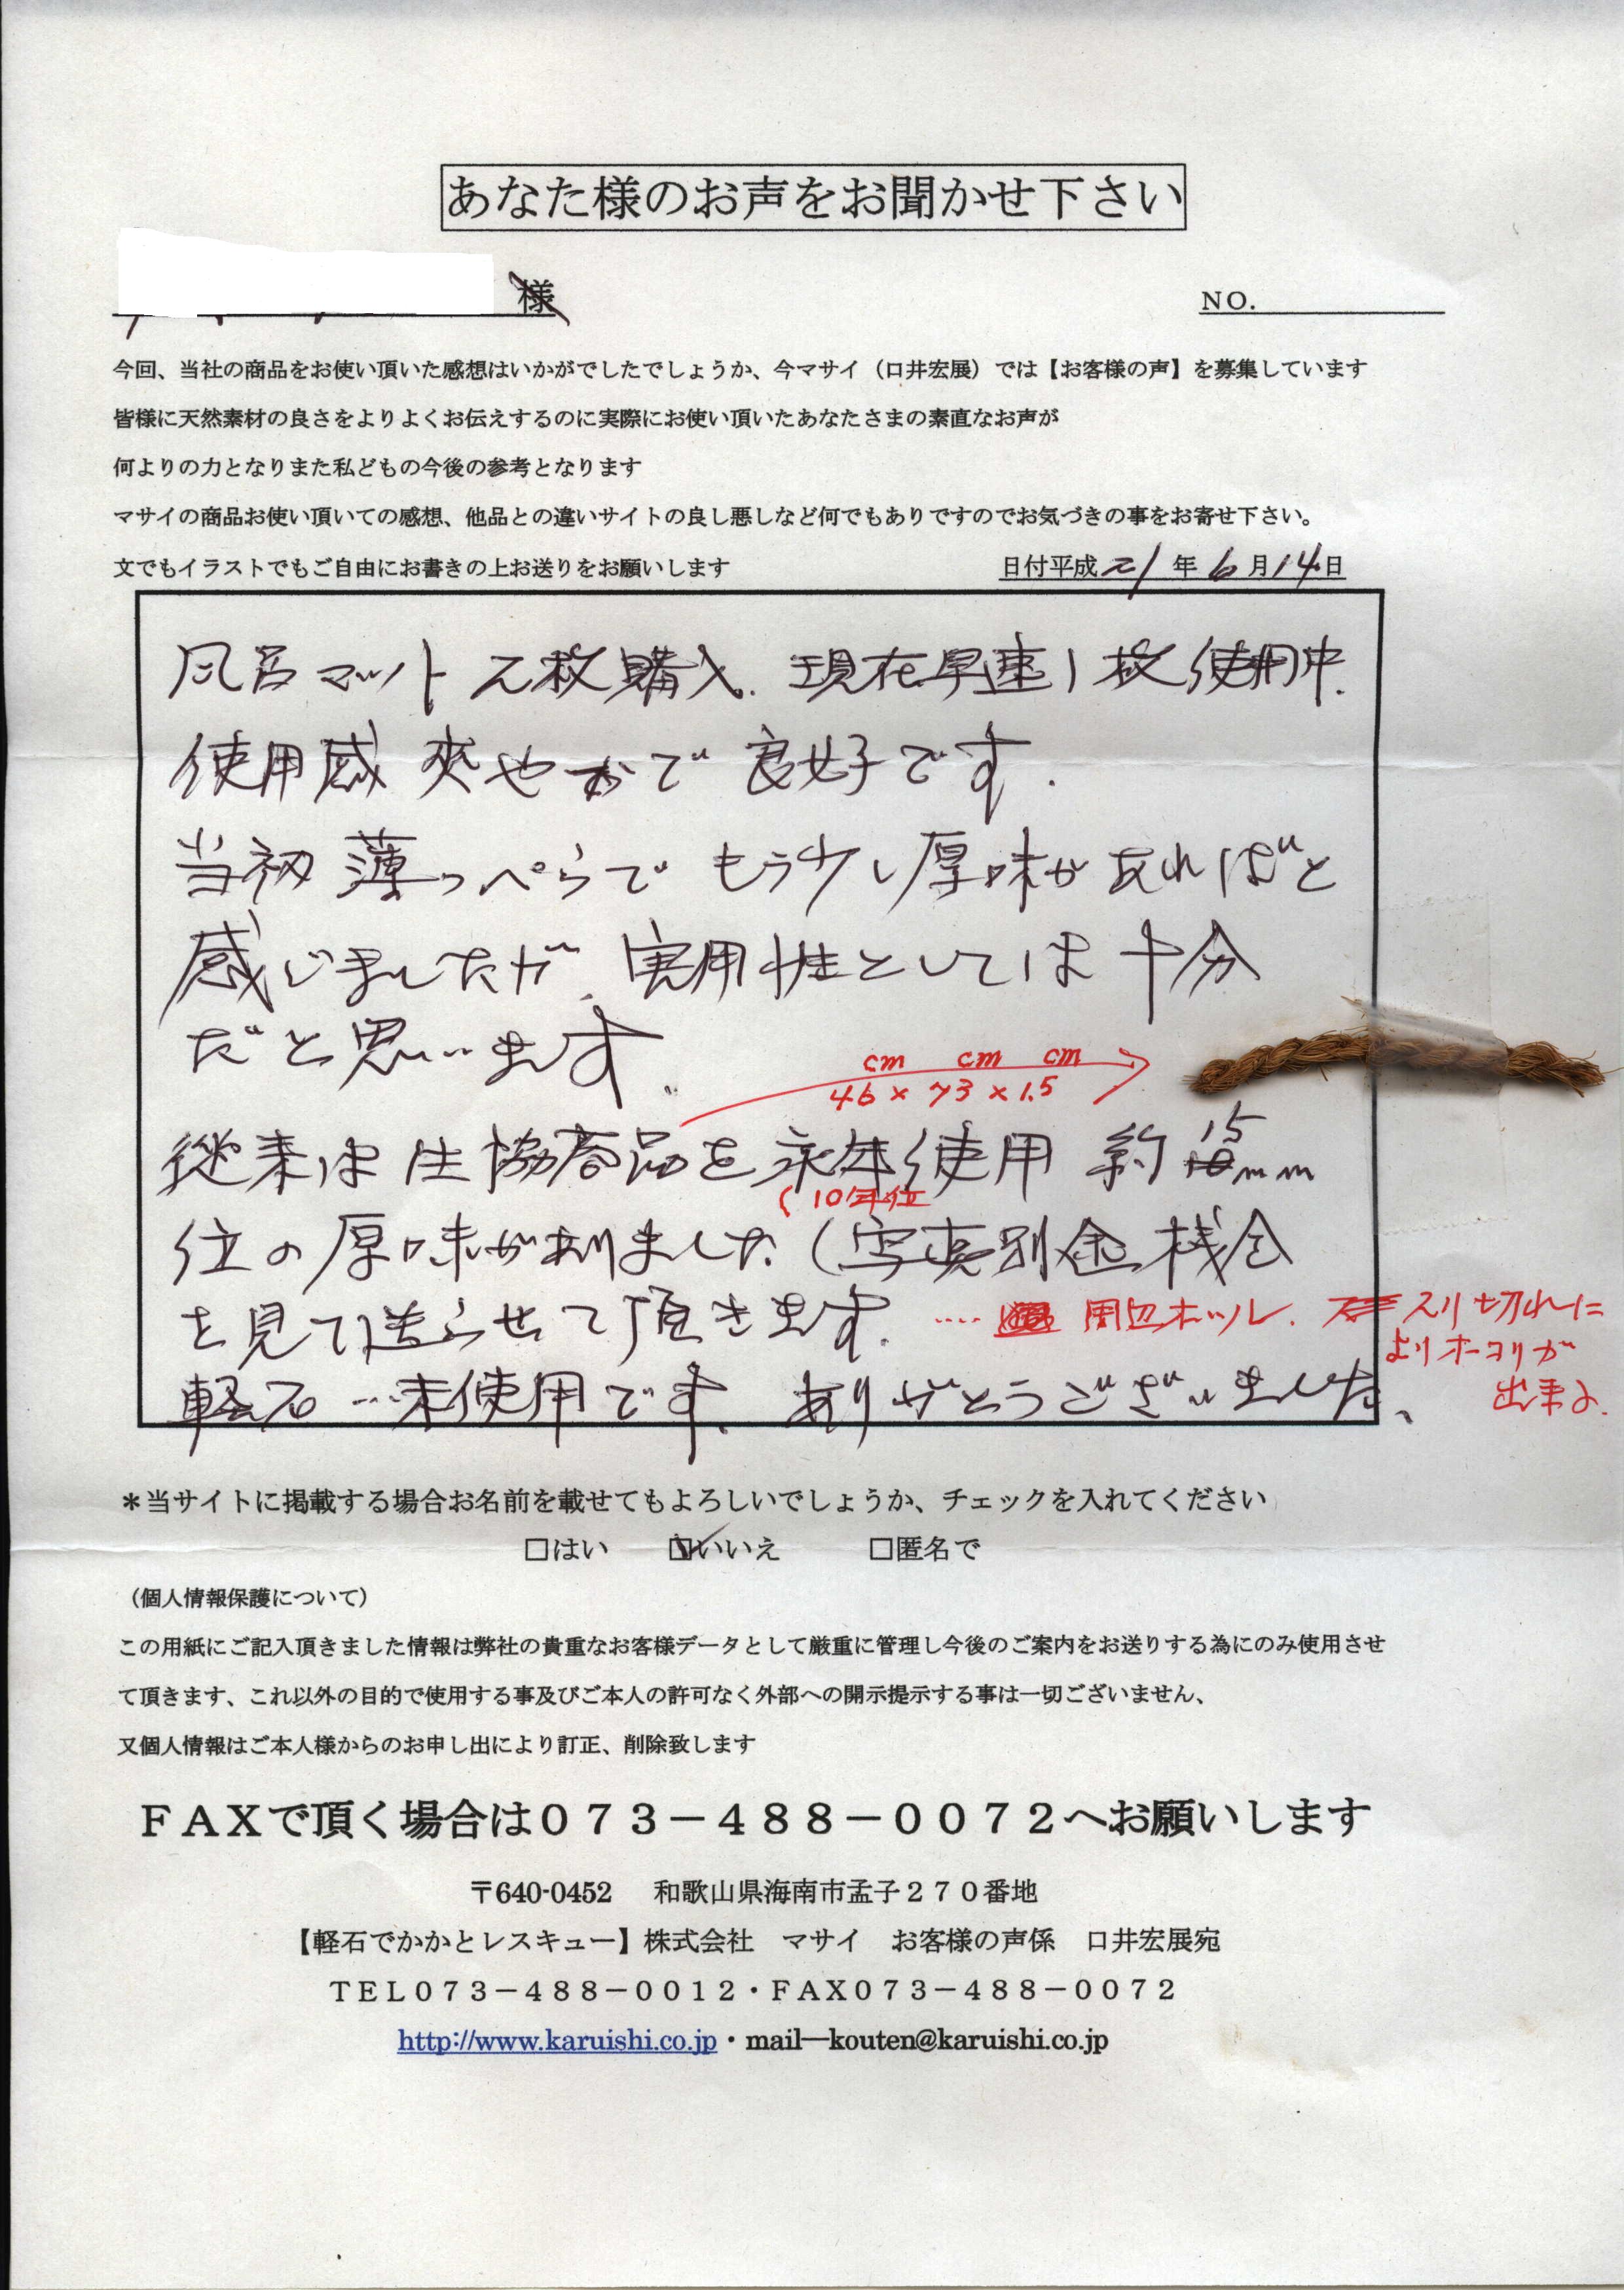 あなた様のお声をお聞かせ下さい
様
NO.
今回、当社の商品をお使い頂いた感想はいかがでしたでしょうか、今マサイ（口井宏展）では【お客様の声】を募集しています
皆様に天然素材の良さをよりよくお伝えするのに実際にお使い頂いたあなたさまの素直なお声が
何よりの力となりまた私どもの今後の参考となります
マサイの商品お使い頂いての感想、他品との違いサイトの良し悪しなど何でもありですのでお気づきの事をお寄せ下さい。
文でもイラストでもご自由にお書きの上お送りをお願いします
日付平成21年6月14日
風呂マット2枚購入. 現在早速1枚使用中.
使用感 爽やかで 良好です.
当初 薄っぺらで もう少し厚味があればと
感じましたが、実用性としては十分
だと思います.
cm cm cm
46×73×1.5
従来は生協商品を永年使用 約15mm
(10年位
位の厚味がありました(写真別途機会
を見て送らせて頂きます.
.... 周辺ホツレ. スリ切れに
よりホコリが
出来る.
軽石…未使用です. ありがとうございました、
＊当サイトに掲載する場合お名前を載せてもよろしいでしょうか、チェックを入れてください
□はい ☑いいえ □匿名で
（個人情報保護について）
この用紙にご記入頂きました情報は弊社の貴重なお客様データとして厳重に管理し今後のご案内をお送りする為にのみ使用させ
て頂きます、これ以外の目的で使用する事及びご本人の許可なく外部への開示提示する事は一切ございません、
又個人情報はご本人様からのお申し出により訂正、削除致します
ＦＡＸで頂く場合は０７３－４８８－００７２へお願いします
〒640-0452 和歌山県海南市孟子２７０番地
【軽石でかかとレスキュー】株式会社 マサイ お客様の声係 口井宏展宛
ＴＥＬ０７３－４８８－００１２・ＦＡＸ０７３－４８８－００７２
http://www.karuishi.co.jp・mail―kouten@karuishi.co.jp